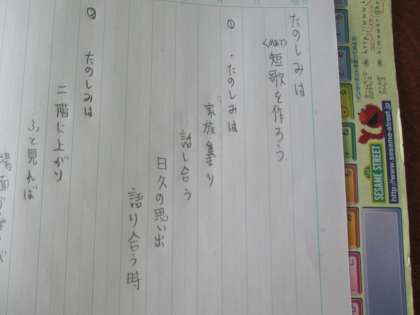 たのしみは
短歌を作ろう
① ・たのしみは
家族集り
話し合う
日々の思い出
語り合う時
② たのしみは
二階に上がり
ふと見れば
SESAME STREET